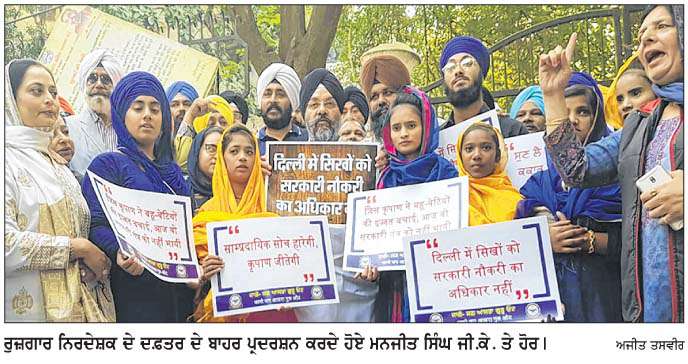 दिल्ली में सिखों को
सरकारी नौकरी
का अधिकार न
जिस कृपाण ने बहू-बेटियों
की इज्जत बचाई, आज वो
सरकार को नहीं भायी
साम्प्रदायिक सोच हारेगी,
कृपाण जीतेगी
जिस कृपाण ने बहू-बेटियों
की इज्जत बचाई, आज वो
सरकार को नहीं भायी
दिल्ली में सिखों को
सरकारी नौकरी का
अधिकार नहीं
ਰੁਜ਼ਗਾਰ ਨਿਰਦੇਸ਼ਕ ਦੇ ਦਫ਼ਤਰ ਦੇ ਬਾਹਰ ਪ੍ਰਦਰਸ਼ਨ ਕਰਦੇ ਹੋਏ ਮਨਜੀਤ ਸਿੰਘ ਜੀ.ਕੇ. ਤੇ ਹੋਰ।
ਅਜੀਤ ਤਸਵੀਰ